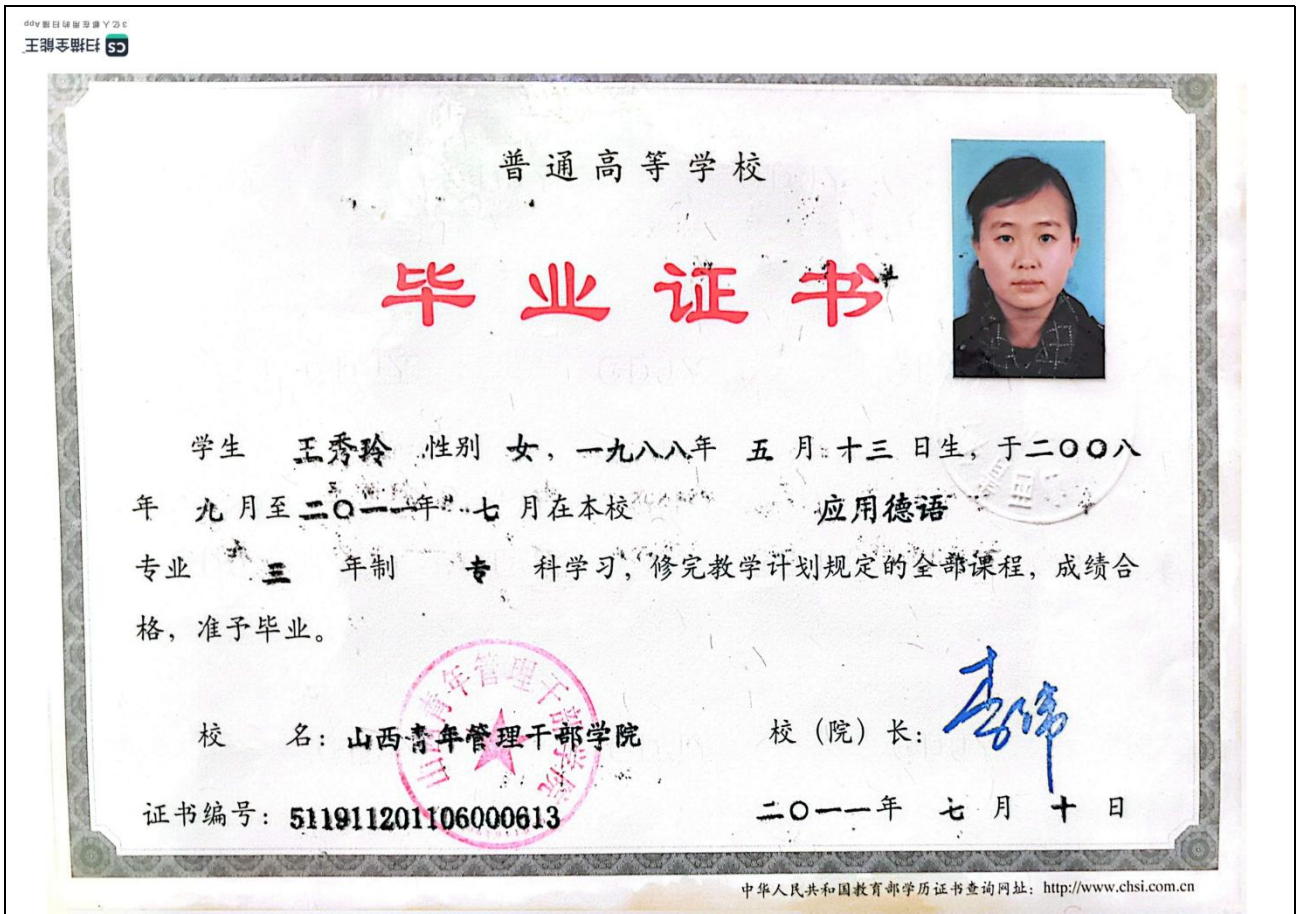 3亿人都在用的扫描App
CS 扫描全能王
普通高等学校
毕业证书
学生 王秀玲 性别 女，一九八八年 五 月 十三 日生，于二〇〇八
年 九 月至二〇一一年 七 月在本校 应用德语
专业 三 年制 专 科学习，修完教学计划规定的全部课程，成绩合
格，准予毕业。
山西青年管理干部学院
校 名：山西青年管理干部学院 校（院）长：
证书编号：511911201106000613 二〇一一年 七 月 十 日
中华人民共和国教育部学历证书查询网址：http://www.chsi.com.cn